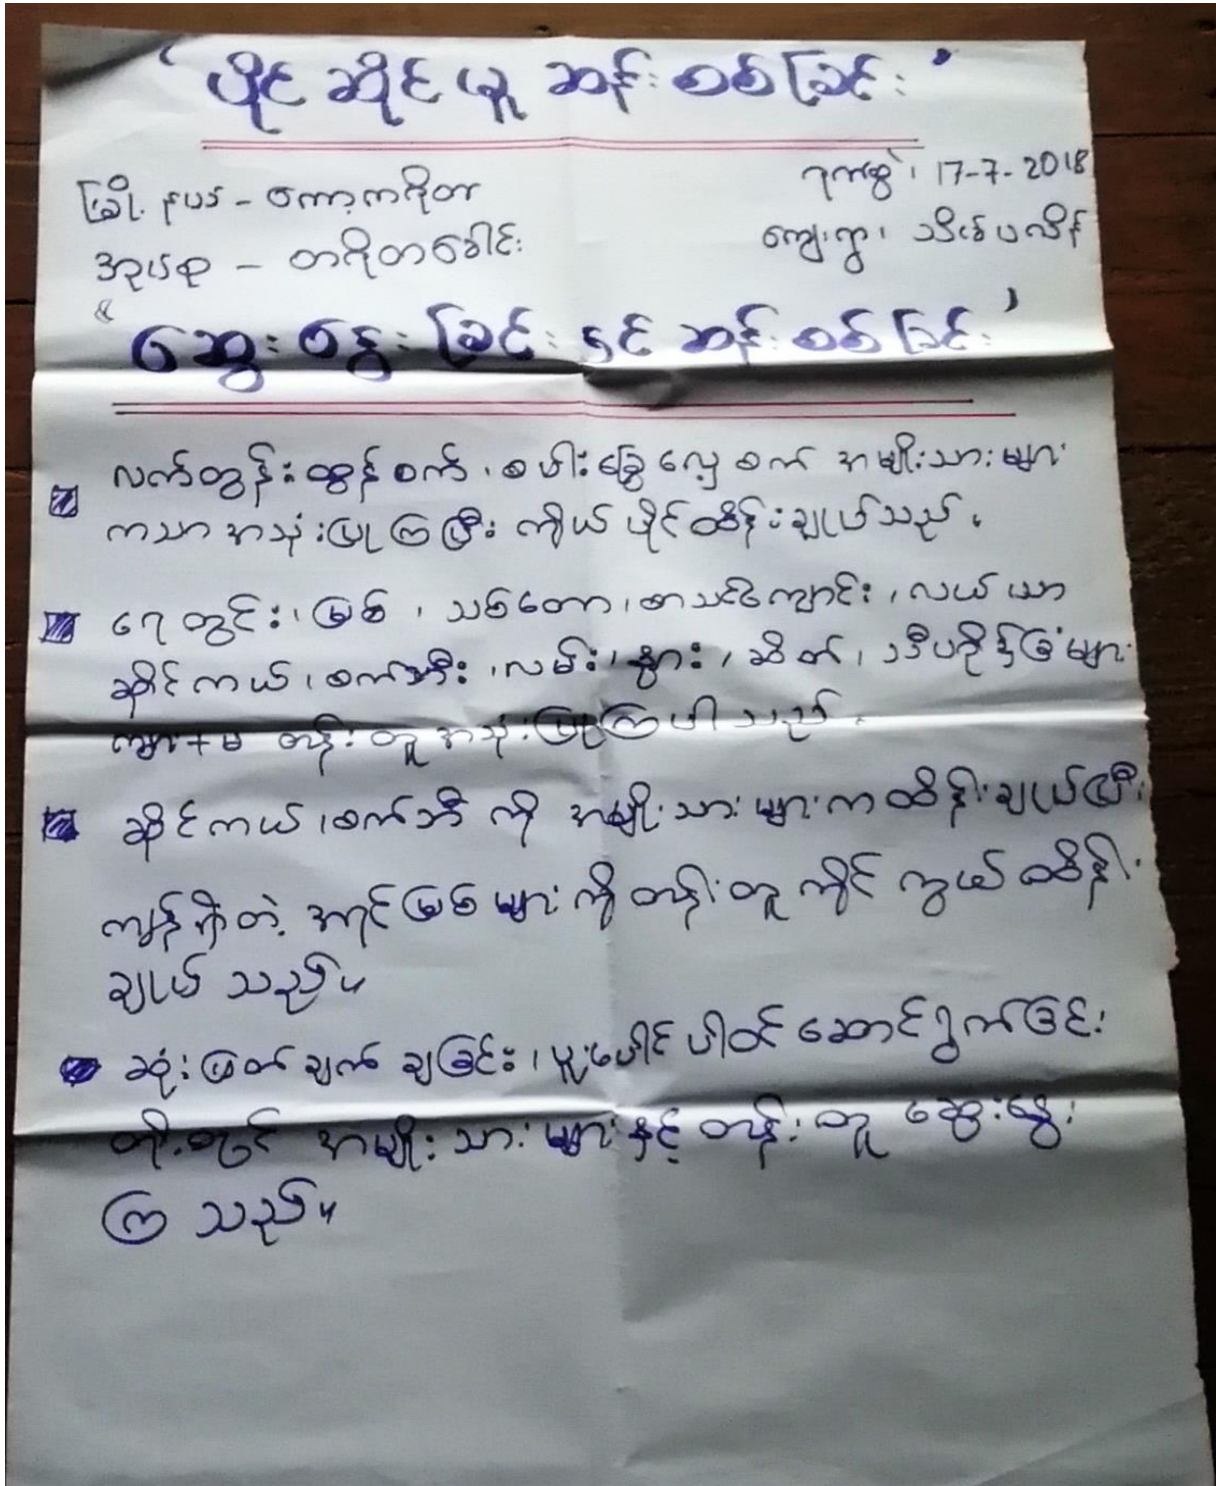 ‘ ပိုင်ဆိုင်မှု ဆန်းစစ်ခြင်း ’
မြို့နယ် - ကော့ကရိတ်
ရက်စွဲ၊ 17-7-2018
အုပ်စု - တရိတခေါင်း
ကျေးရွာ၊
“ ဆွေးနွေးခြင်းနှင့် ဆန်းစစ်ခြင်း ”
လက်တွန်းထွန်စက်၊ စပါးခြွေလှေ့စက် အမျိုးသားများ
ကသာ အသုံးပြုကြပြီး ကိုယ်ပိုင်ထိန်းချုပ်သည်။
ရေတွင်း၊ မြစ်၊ သစ်တော၊ စာသင်ကျောင်း၊ လယ်ယာ
ဆိုင်ကယ်၊ စက်ဘီး၊ လမ်း၊ နွား၊ ဆိတ်၊ ခြံများ
ကျား+မ တန်းတူ အသုံးပြုကြပါသည်။
ဆိုင်ကယ်၊ စက်ဘီး ကို အမျိုးသားများက ထိန်းချုပ်ပြီး
ကျန်ရှိတဲ့ အရင်းမြစ်များကို တန်းတူ ကိုင်တွယ်ထိန်း
ချုပ်သည်။
ဆုံးဖြတ်ချက် ချခြင်း၊ ပူးပေါင်းပါဝင် ဆောင်ရွက်ခြင်း
တို့တွင် အမျိုးသားများနှင့် တန်းတူ ဆွေးနွေး
ကြသည်။